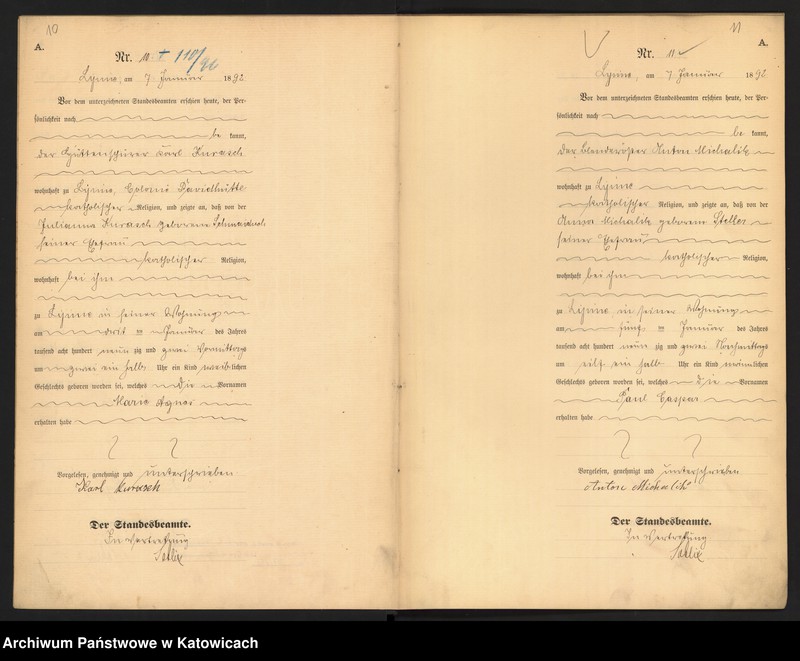 10
A.
Nr. 10 + 110/96
Lipine, am 7 Januar 1892
Vor dem unterzeichneten Standesbeamten erschien heute, der Per-
sönlichkeit nach
be kannt,
der Hüttenschürer Karl Kurasch
wohnhaft zu Lipine, Colonie Davidhütte
katholischer Religion, und zeigte an, daß von der
Julianna Kurasch geborenen
seiner Ehefrau
katholischer Religion,
wohnhaft bei ihm
zu Lipine in seiner Wohnung
am Januar des Jahres
tausend acht hundert neun zig und zwei Vormittags
um zwei ein halb Uhr ein Kind weiblichen
Geschlechts geboren worden sei, welches die Vornamen
Marie Agnes
erhalten habe
Vorgelesen, genehmigt und unterschrieben
Karl Kurasch
Der Standesbeamte.
In Vertretung
11
A.
Nr. 11
Lipine, am 7 Januar 1892
Vor dem unterzeichneten Standesbeamten erschien heute, der Per-
sönlichkeit nach
be kannt,
der Blenderöster Anton Michalik
wohnhaft zu Lipine
katholischer Religion, und zeigte an, daß von der
Anna Michalik geborenen Steller
seiner Ehefrau
katholischer Religion,
wohnhaft bei ihm
zu Lipine in seiner Wohnung
am fünf Januar des Jahres
tausend acht hundert neun zig und zwei Nachmittags
um eilf ein halb Uhr ein Kind männlichen
Geschlechts geboren worden sei, welches die Vornamen
Paul Caspar
erhalten habe
Vorgelesen, genehmigt und unterschrieben
Anton Michalik
Der Standesbeamte.
In Vertretung
Archiwum Państwowe w Katowicach